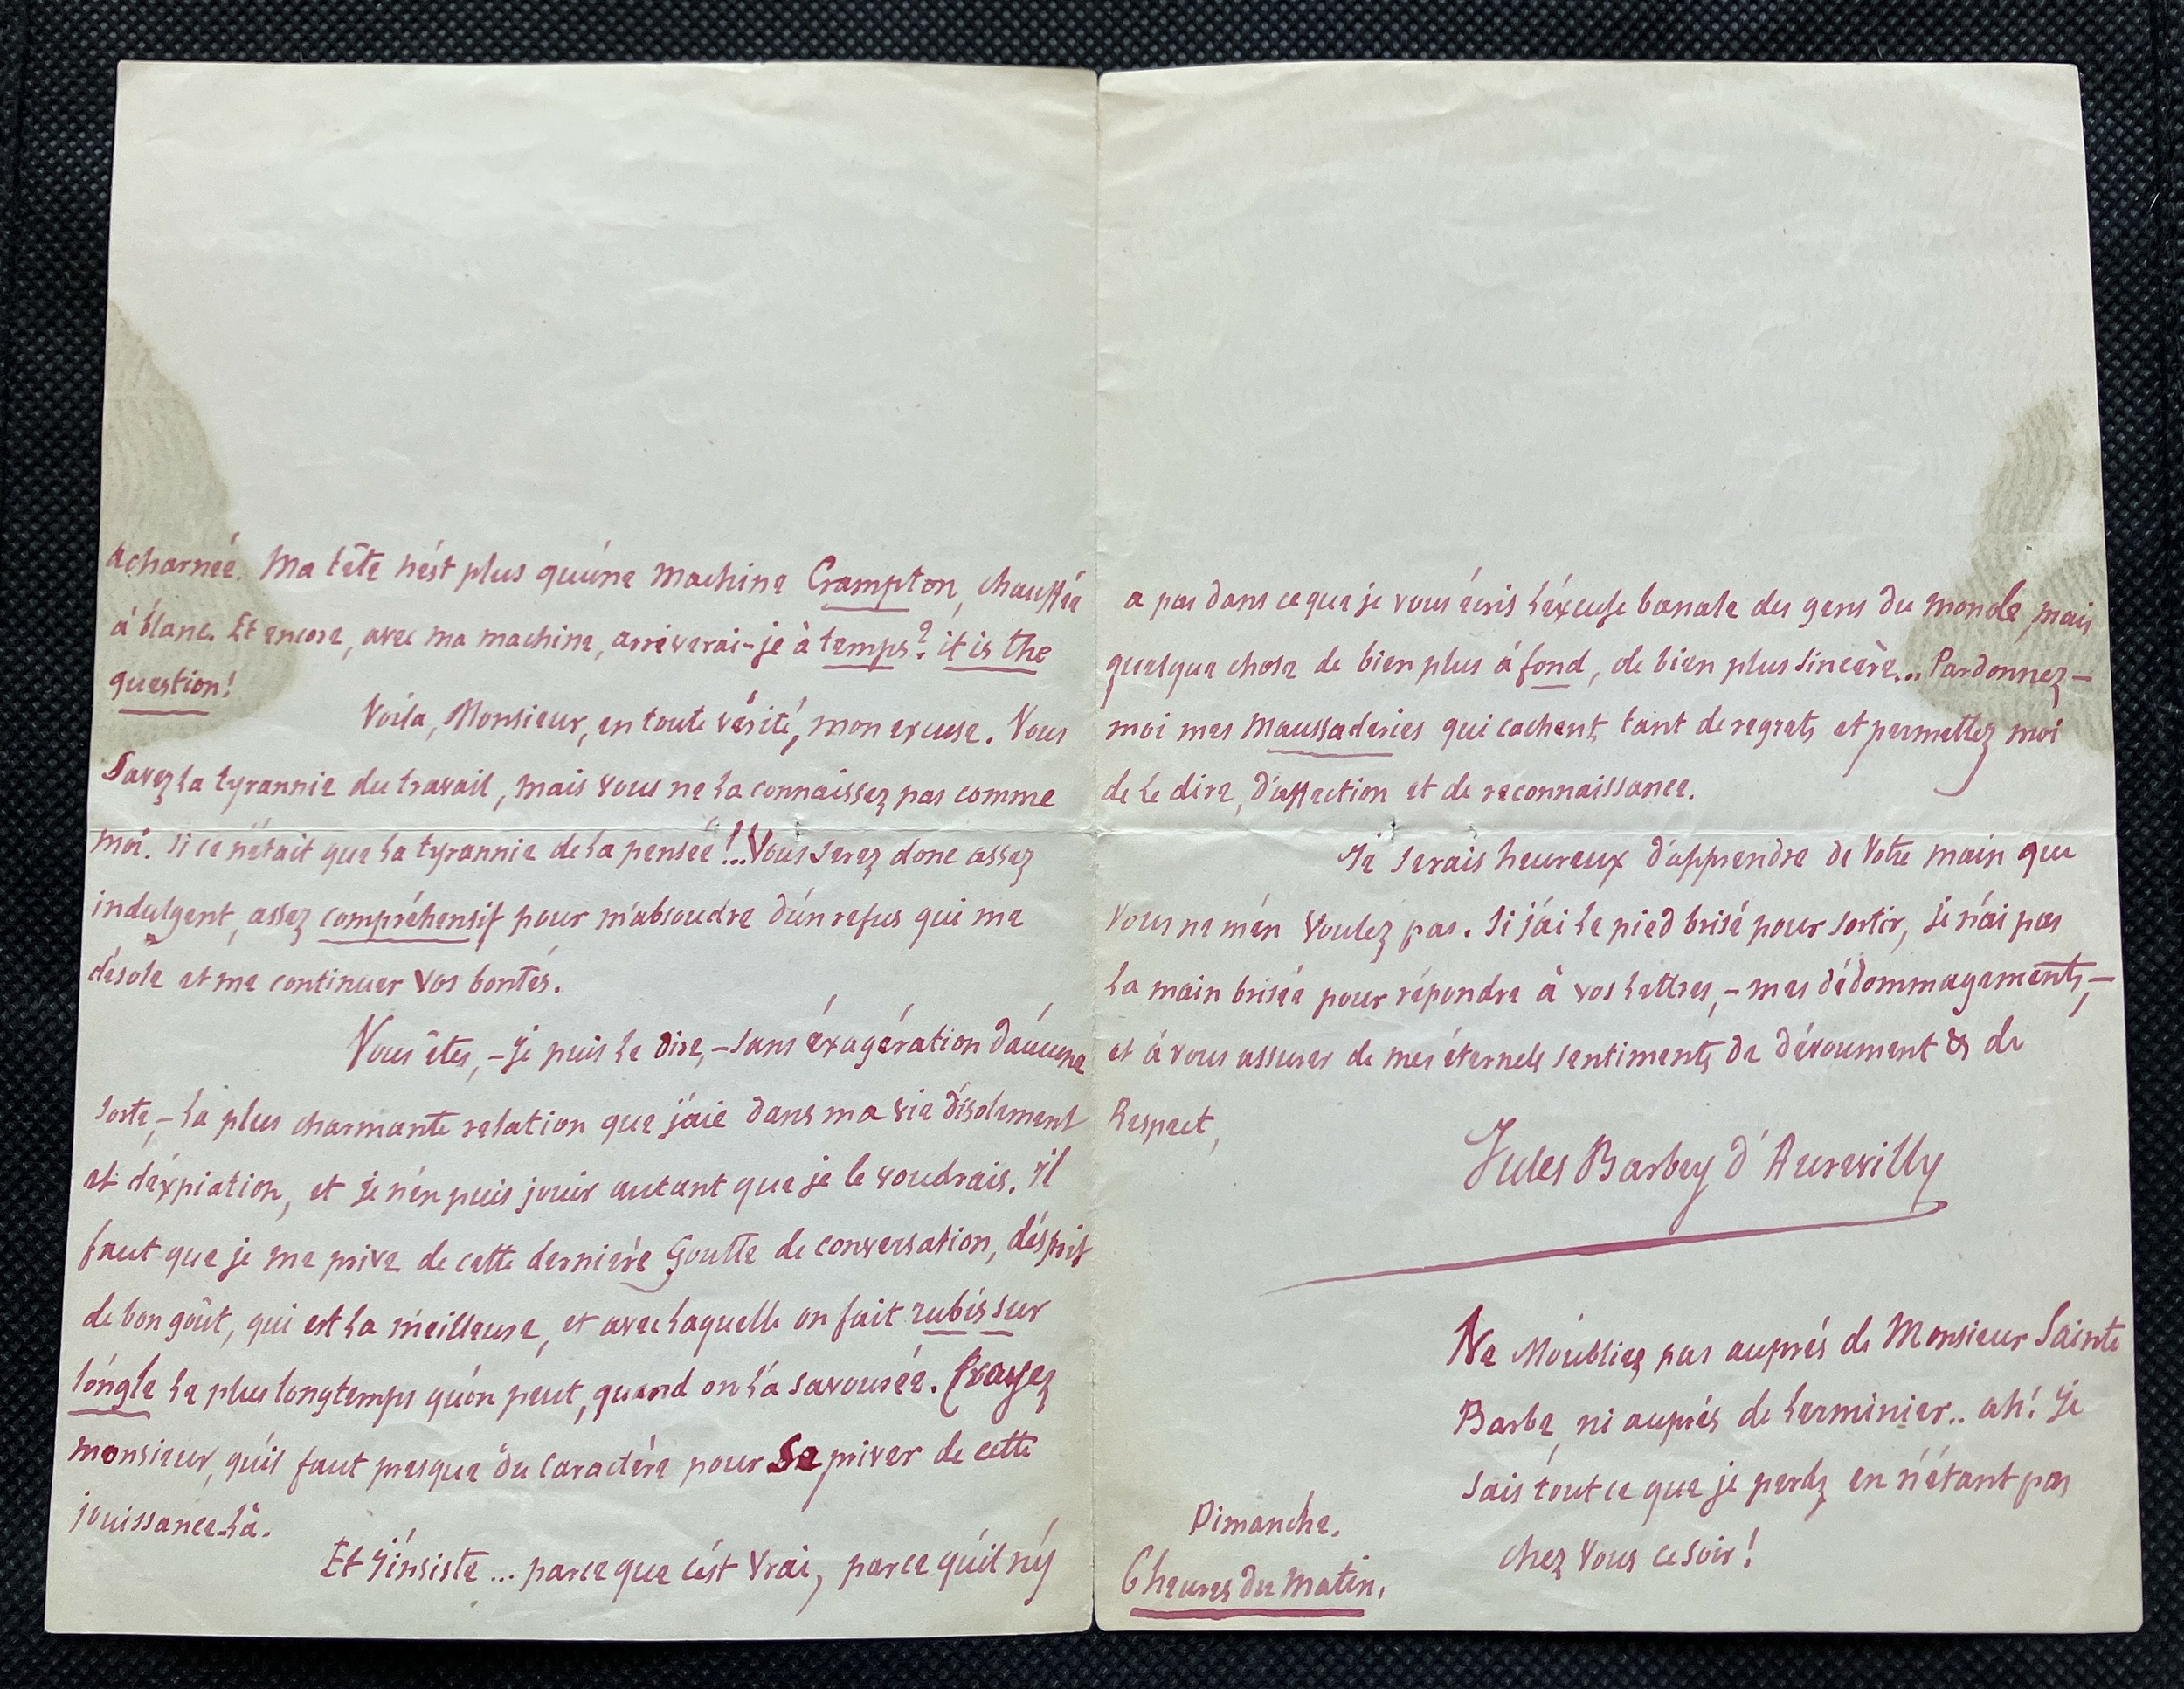 acharnée. Ma tête n'est plus qu'une machine Crampton, chauffée
à blanc. Et encore, avec ma machine, arriverai-je à temps? it is the
question!
Voilà, Monsieur, en toute vérité, mon excuse. Vous
savez la tyrannie du travail, mais vous ne la connaissez pas comme
moi. Si ce n'était que la tyrannie de la pensée!... Vous serez donc assez
indulgent, assez compréhensif pour m'absoudre d'un refus qui me
désole et me continuer vos bontés.
Vous êtes, – je puis le dire, – sans éxagération d'aucune
sorte, – la plus charmante relation que j'aie dans ma vie d'isolement
et d'expiation, et je n'en puis jouir autant que je le voudrais. Il
faut que je me prive de cette dernière Goutte de conversation, d'esprit
de bon goût, qui est la meilleure, et avec laquelle on fait rubis sur
l'ongle le plus longtemps qu'on peut, quand on l'a savourée. Croyez
monsieur, qu'il faut presque du caractère pour se priver de cette
jouissance-là.
Et j'insiste... parce que c'est vrai, parce qu'il n'y
a pas dans ce que je vous écris l'excuse banale des gens du monde, mais
quelque chose de bien plus à fond, de bien plus sincère... Pardonnez-
moi mes maussaderies qui cachent tant de regrets et permettez moi
de le dire, d'affection et de reconnaissance.
Je serais heureux d'apprendre de Votre main que
vous ne m'en voulez pas. Si j'ai le pied brisé pour sortir, je n'ai pas
la main brisée pour répondre à vos lettres, – mes dédommagements, –
et à vous assurer de mes éternels sentiments de dévoument & de
Respect,
Jules Barbey d'Aurevilly
Ne M'oubliez pas auprès de Monsieur Sainte
Barbe, ni auprès de Lerminier.. ah! je
sais tout ce que je perds en n'étant pas
chez Vous ce soir!
Dimanche.
6 heures du matin.